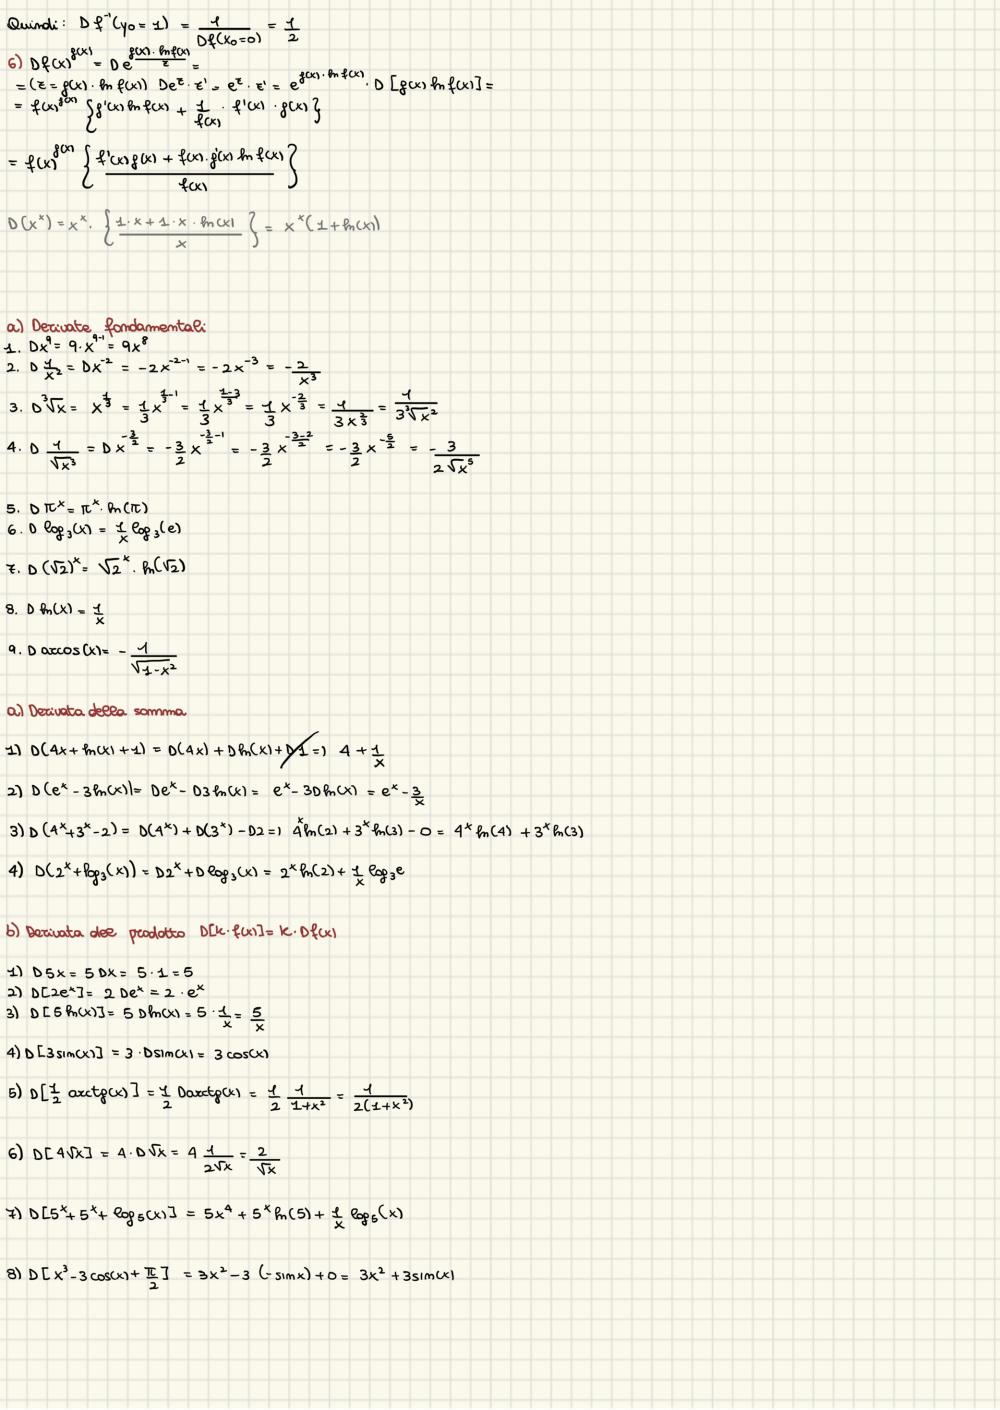 Quindi: Df⁻¹(y₀=1) = 1/Df(x₀=0) = 1/2
6) Df(x)^g(x) = De^(g(x)·ln f(x)) [z] =
=(z = g(x)·ln f(x)) De^z·z' = e^z·z' = e^(g(x)·ln f(x))·D[g(x) ln f(x)] =
= f(x)^g(x) {g'(x) ln f(x) + 1/f(x) · f'(x) · g(x)}
= f(x)^g(x) {(f'(x)g(x) + f(x)·g'(x) ln f(x))/f(x)}
D(x^x) = x^x · {(1·x+1·x·ln(x))/x} = x^x(1+ln(x))
a) Derivate fondamentali
1. Dx⁹ = 9·x^(9-1) = 9x⁸
2. D 1/x² = Dx^-2 = -2x^(-2-1) = -2x^-3 = -2/x³
3. D ³√x = x^(1/3) = 1/3 x^(1/3-1) = 1/3 x^((1-3)/3) = 1/3 x^(-2/3) = 1/(3x^(2/3)) = 1/(3 ³√x²)
4. D 1/√x³ = Dx^(-3/2) = -3/2 x^(-3/2-1) = -3/2 x^((-3-2)/2) = -3/2 x^(-5/2) = -3/(2√x⁵)
5. D π^x = π^x·ln(π)
6. D log₃(x) = 1/x log₃(e)
7. D (√2)^x = √2^x · ln(√2)
8. D ln(x) = 1/x
9. D arcos(x) = - 1/√(1-x²)
a) Derivata della somma
1) D(4x + ln(x) + 1) = D(4x) + D ln(x) + D1 => 4 + 1/x
2) D(e^x - 3ln(x)) = De^x - D3ln(x) = e^x - 3Dln(x) = e^x - 3/x
3) D(4^x+3^x-2) = D(4^x) + D(3^x) - D2 => 4^x ln(2) + 3^x ln(3) - 0 = 4^x ln(4) + 3^x ln(3)
4) D(2^x+log₃(x)) = D2^x + Dlog₃(x) = 2^x ln(2) + 1/x log₃e
b) Derivata del prodotto D[k·f(x)] = k·Df(x)
1) D5x = 5Dx = 5·1 = 5
2) D[2e^x] = 2 De^x = 2·e^x
3) D[5ln(x)] = 5 Dln(x) = 5·1/x = 5/x
4) D[3sin(x)] = 3·Dsin(x) = 3 cos(x)
5) D[1/2 arctg(x)] = 1/2 Darctg(x) = 1/2 1/(1+x²) = 1/(2(1+x²))
6) D[4√x] = 4·D√x = 4 1/(2√x) = 2/√x
7) D[5^x + 5^x + log₅(x)] = 5x⁴ + 5^x ln(5) + 1/x log₅(x)
8) D[x³ - 3cos(x) + π/2] = 3x² - 3(-sinx) + 0 = 3x² + 3sin(x)